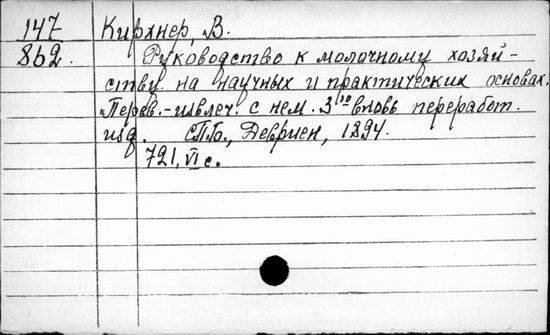 147 Кирхнер, В.
862. Руководство к молочному хозяй-
ству на научных и практических основах.
Перев.-извлеч. с нем. 3го вновь переработ.
изд. СПБ., Девриен, 1894.
721, VI с.